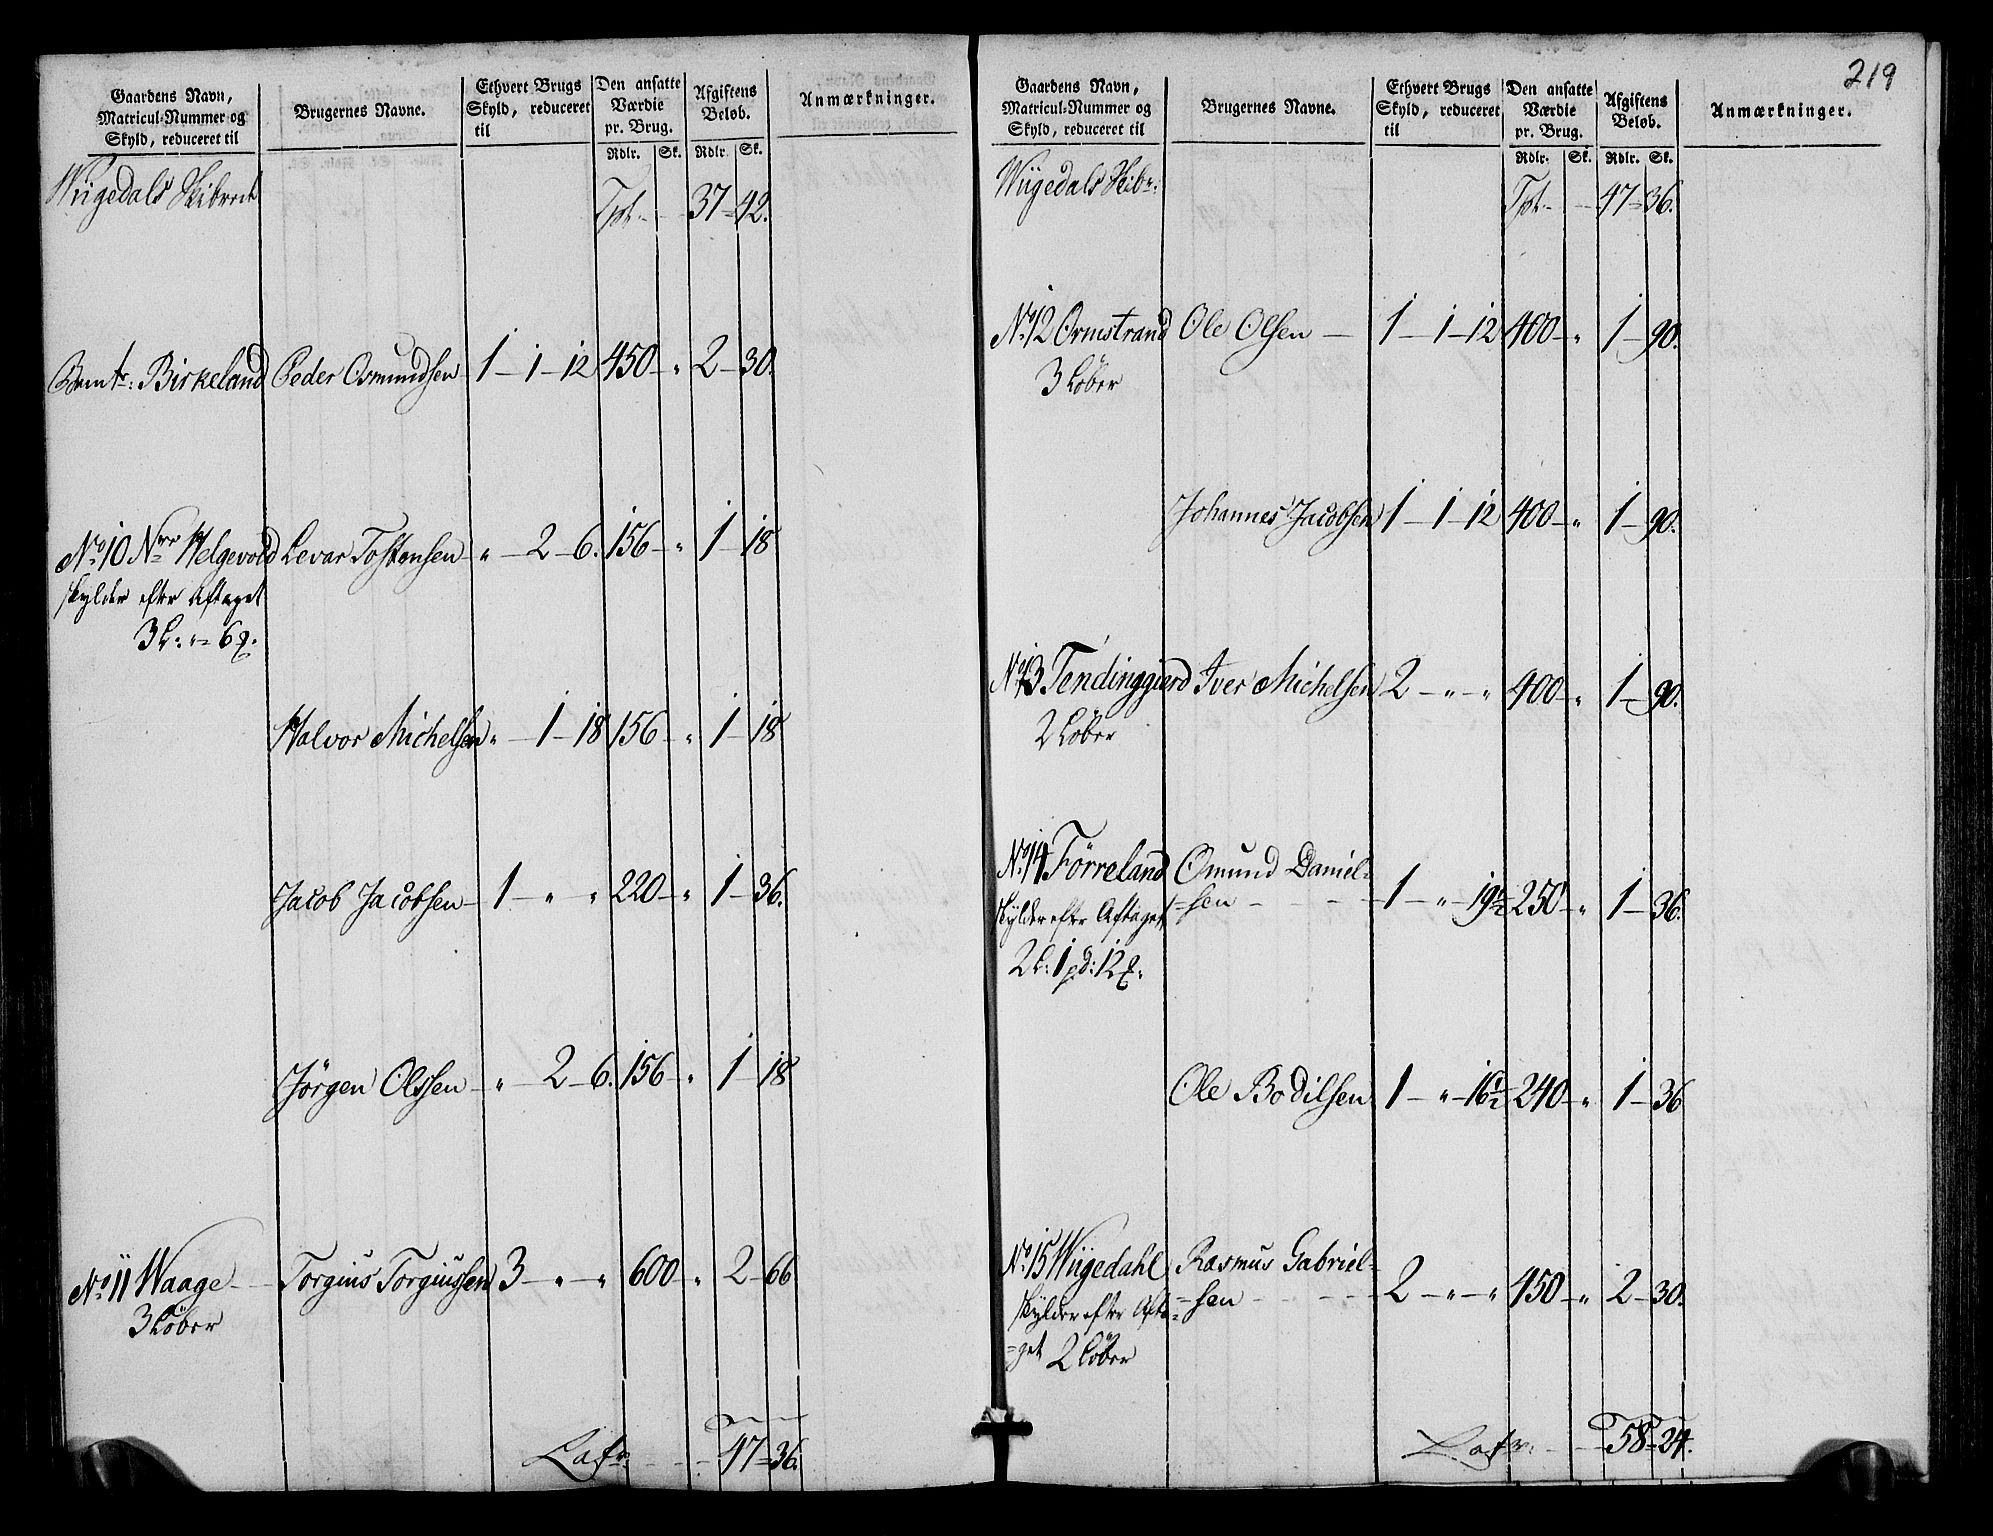 Gaardens Navn, Matricul-Nummer og Skyld, reduceret til | Brugernes Navne. | Ethvert Brugs Skyld, reduceret til | Den ansatte Værdie pr. Brug. Rdlr. Sk. | Afgiftens Beløb. Rdlr. Sk. | Anmærkninger.
Wiigedals Skibred
Tpt. - - 37 = 42.
Birkeland Peder Osmundsen 1 - 1 - 12 450 - " 2 - 30.
No. 10 Nrr Helgevold Levar Tostensen - " - 2 - 6. 156 - " 1 - 18
skylder efter Aftaget
3 L: " = 6 ℔.
Halvor Michelsen " - 1 - 18 156 - " 1 - 18
Jacob Jacobsen - 1 - " " 220 - " 1 - 36.
Jørgen Olssen - " - 2 - 6. 156 - " 1 - 18
No. 11 Waage - Torgius Torgiussen 3 - " - " 600 " 2 - 66
3 Løber
Lat. - - - 47 = 36.
219
Gaardens Navn, Matricul-Nummer og Skyld, reduceret til | Brugernes Navne. | Ethvert Brugs Skyld, reduceret til | Den ansatte Værdie pr. Brug. Rdlr. Sk. | Afgiftens Beløb. Rdlr. Sk. | Anmærkninger.
Wiigedals Skibr:
Tpt. - - 47 = 36.
No. 12 Ormstrand Ole Olsen - 1 - 1 - 12 400 - " 1 - 90.
3 Løber
Johannes Jacobsen 1 - 1 - 12 400 - " 1 - 90.
No. 13 Tendinggierd Iver Michelsen 2 - " - " 400 - " 1 - 90.
2 Løber
No. 14 Førreland Osmund Daniel=
skylder efter Aftaget =sen - - - 1 - " - 19½ 250 - " 1 - 36.
2 L: 1 pd: 12 ℔.
Ole Bodilsen 1 - " - 16½ 240 - " 1 - 36
No. 15 Wiigedahl Rasmus Gabriel=
skylder efter Afta= =sen - - - 2 - " - " 450 - " 2 - 30.
=get 2 Løber
Lat. - - 58 = 24.